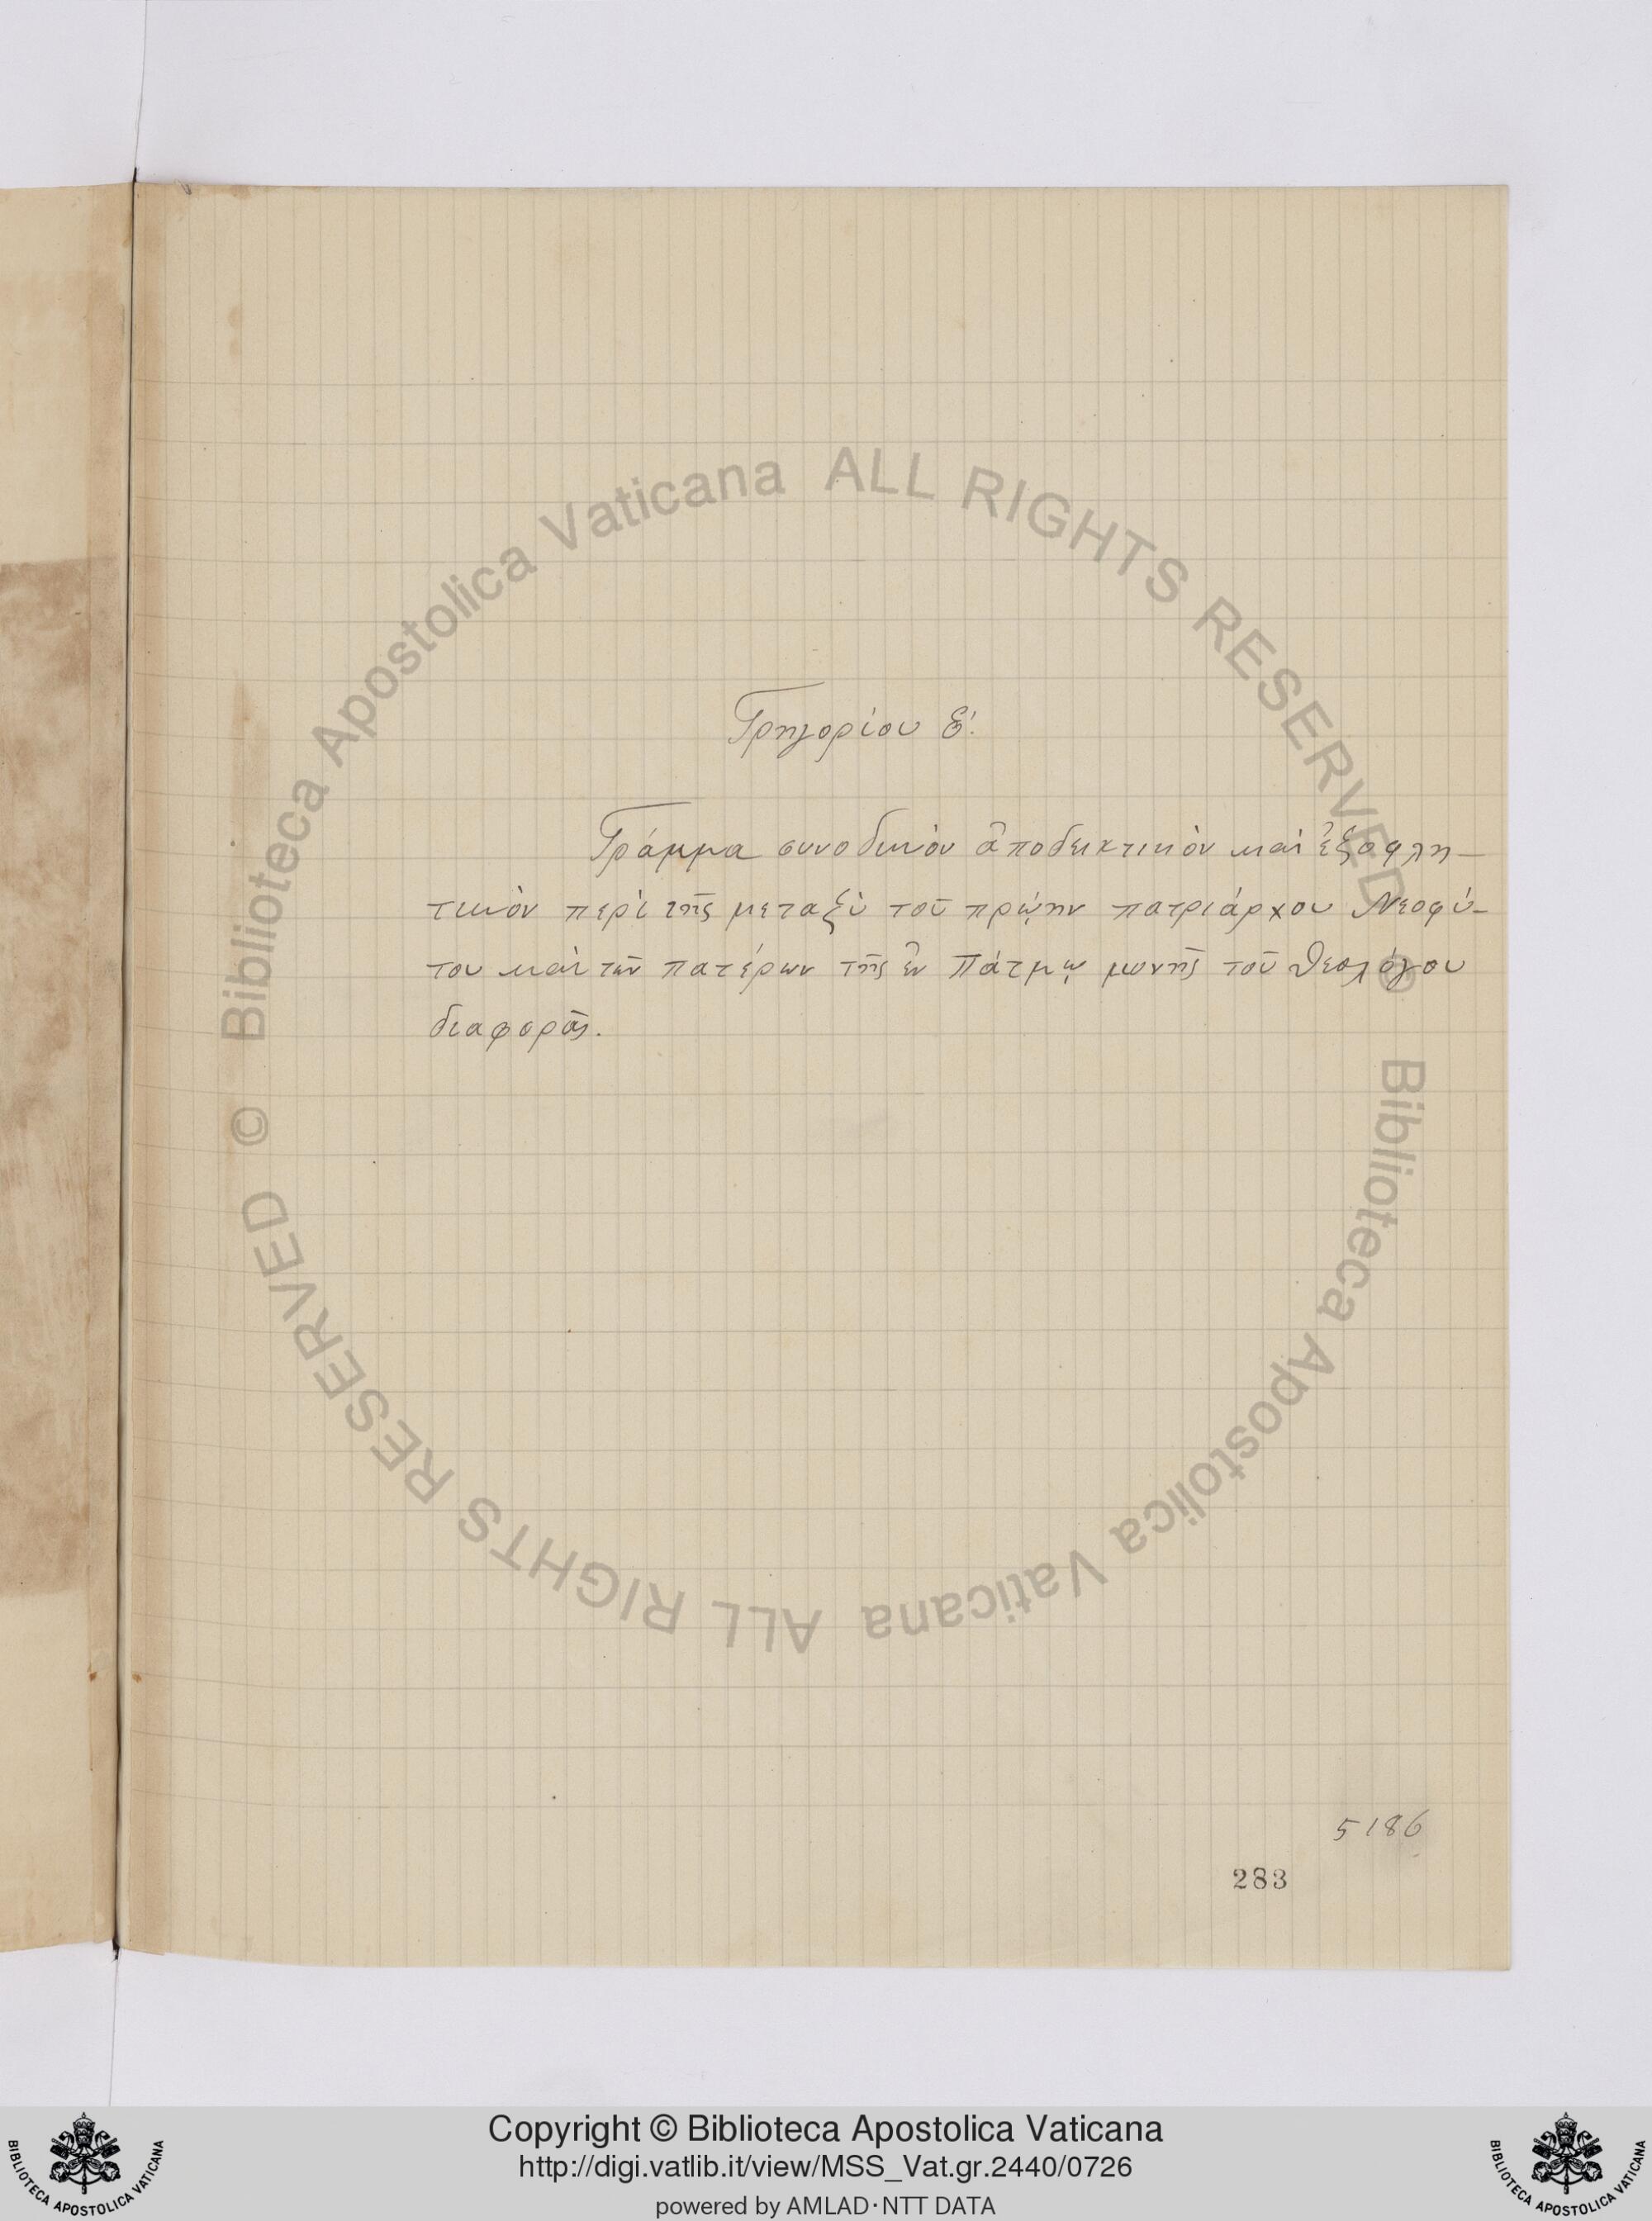 Γρηγορίου Εʹ.
Γράμμα συνοδικὸν ἀποδεικτικὸν καὶ ἐξοφλη-
τικὸν περὶ τῆς μεταξὺ τοῦ πρῴην πατριάρχου Νεοφύ-
του καὶ τῶν πατέρων τῆς ἐν Πάτμῳ μονῆς τοῦ Θεολόγου
διαφορᾶς.
5186
283
© Biblioteca Apostolica Vaticana ALL RIGHTS RESERVED
© Biblioteca Apostolica Vaticana ALL RIGHTS RESERVED
Copyright © Biblioteca Apostolica Vaticana
http://digi.vatlib.it/view/MSS_Vat.gr.2440/0726
powered by AMLAD·NTT DATA
BIBLIOTECA APOSTOLICA VATICANA
BIBLIOTECA APOSTOLICA VATICANA